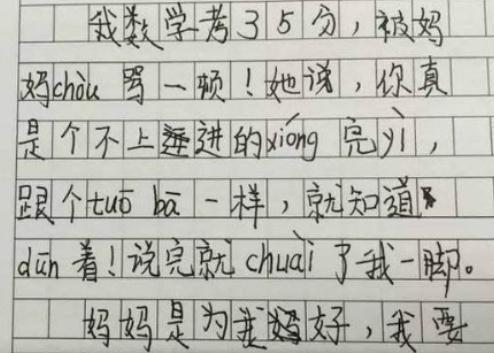 我数学考35分，被妈
妈chòu骂一顿！她说，你真
是个不上进的xióng完yì，
跟个tuō bā一样，就知道
dūn着！说完就chuài了我一脚。
妈妈是为我好，我要